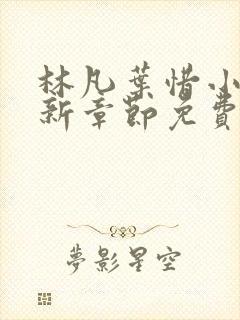 林凡葉惜小
新章節免費
夢影星空